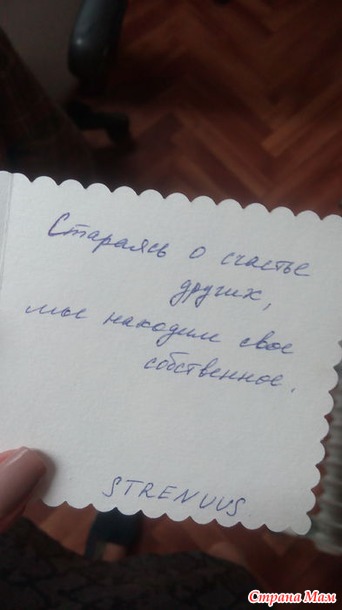 Стараясь о счастье
других,
мы находим свое
собственное.
STRENUUS
Страна Мам